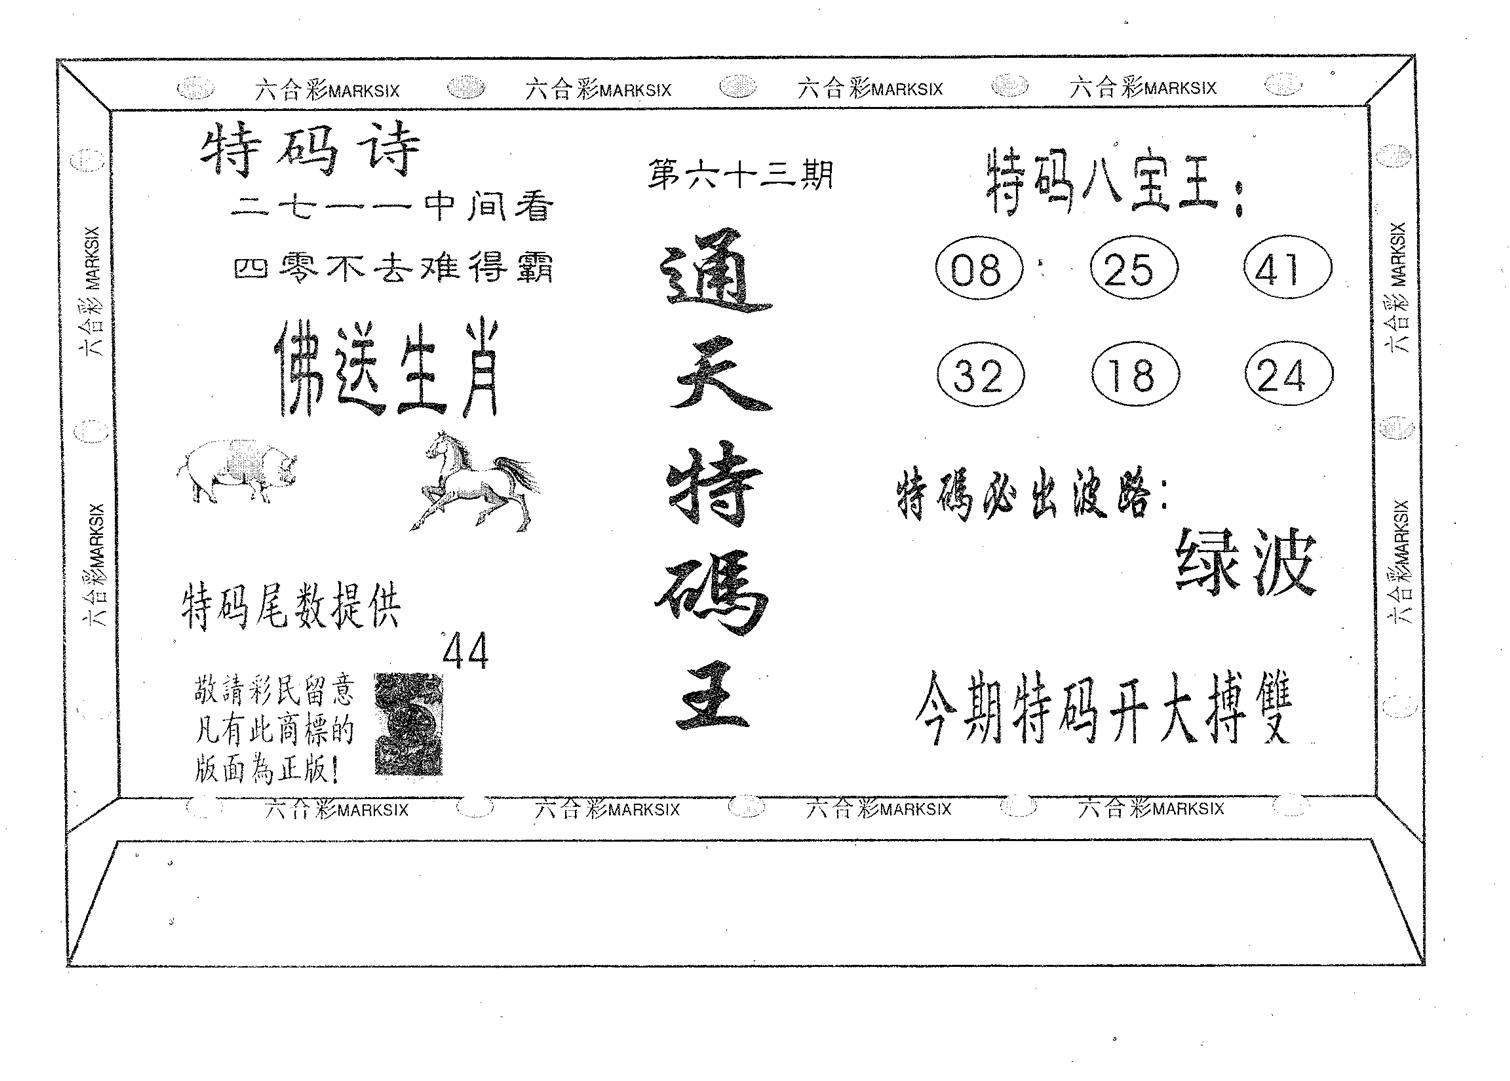 六合彩MARKSIX 六合彩MARKSIX 六合彩MARKSIX 六合彩MARKSIX
特码诗
二七一一中间看
四零不去难得霸
佛送生肖
特码尾数提供
44
敬請彩民留意
凡有此商標的
版面為正版!
第六十三期
通天特碼王
特码八宝王:
08 25 41
32 18 24
特碼必出波路:
绿波
今期特码开大搏雙
六合彩 MARKSIX
六合彩MARKSIX
六合彩 MARKSIX
六合彩MARKSIX
六合彩MARKSIX 六合彩MARKSIX 六合彩MARKSIX 六合彩MARKSIX